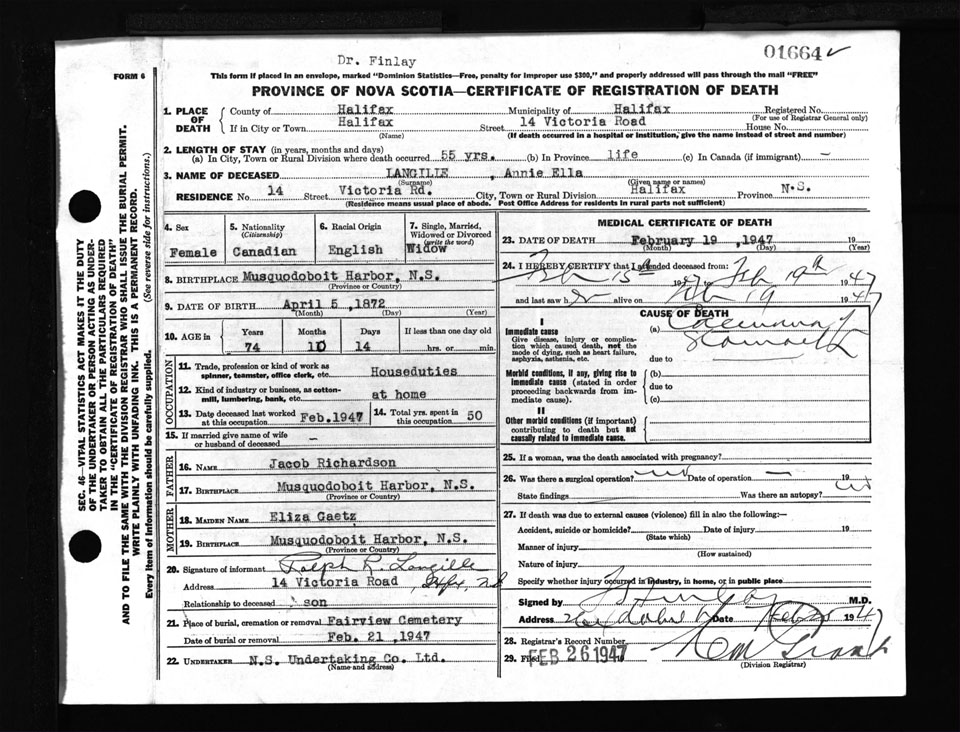 01664
Dr. Finlay
FORM 6
This form if placed in an envelope, marked "Dominion Statistics—Free, penalty for improper use $300," and properly addressed will pass through the mail "FREE"
PROVINCE OF NOVA SCOTIA—CERTIFICATE OF REGISTRATION OF DEATH
1. PLACE OF DEATH
County of Halifax Municipality of Halifax Registered No.
(For use of Registrar General only)
If in City or Town Halifax Street 14 Victoria Road House No.
(Name) (If death occurred in a hospital or institution, give the name instead of street and number)
2. LENGTH OF STAY (in years, months and days)
(a) In City, Town or Rural Division where death occurred 55 yrs. (b) In Province life (c) In Canada (if immigrant) —
3. NAME OF DECEASED LANGILLE , Annie Ella
(Surname) (Given name or names)
RESIDENCE No 14 Street Victoria Rd. City, Town or Rural Division Halifax Province N.S.
(Residence means usual place of abode. Post Office Address for residents in rural parts not sufficient)
4. Sex
Female
5. Nationality
(Citizenship)
Canadian
6. Racial Origin
English
7. Single, Married, Widowed or Divorced
(write the word)
Widow
8. BIRTHPLACE Musquodoboit Harbor, N.S.
(Province or Country)
9. DATE OF BIRTH April 5 ,1872
(Month) (Day) (Year)
10. AGE in
Years Months Days If less than one day old
74 10 14 hrs. or min.
OCCUPATION
11. Trade, profession or kind of work as spinner, teamster, office clerk, etc. Houseduties
12. Kind of industry or business, as cotton-mill, lumbering, bank, etc. at home
13. Date deceased last worked at this occupation Feb.1947
14. Total yrs. spent in this occupation 50
15. If married give name of wife or husband of deceased —
FATHER
16. NAME Jacob Richardson
17. BIRTHPLACE Musquodoboit Harbor, N.S.
(Province or Country)
MOTHER
18. MAIDEN NAME Eliza Gaetz
19. BIRTHPLACE Musquodoboit Harbor, N.S.
(Province or Country)
20. Signature of informant Ralph R. Langille
Address 14 Victoria Road, Hfx, NS
Relationship to deceased son
21. Place of burial, cremation or removal Fairview Cemetery
Date of burial or removal Feb. 21 ,1947
22. UNDERTAKER N.S. Undertaking Co. Ltd.
(Name and address)
MEDICAL CERTIFICATE OF DEATH
23. DATE OF DEATH February 19 ,1947 19
(Month) (Day) (Year)
24. I HEREBY CERTIFY that I attended deceased from:
Feb 15th 1947 to Feb 19th 1947
and last saw her alive on Feb 19 1947
CAUSE OF DEATH
I
Immediate cause
Give disease, injury or complication which caused death, not the mode of dying, such as heart failure, asphyxia, asthenia, etc.
(a) Stomach
due to
Morbid conditions, if any, giving rise to immediate cause (stated in order proceeding backwards from immediate cause).
(b)
due to
(c)
II
Other morbid conditions (if important) contributing to death but not causally related to immediate cause.
25. If a woman, was the death associated with pregnancy?
26. Was there a surgical operation? no Date of operation — 19
State findings Was there an autopsy? no
27. If death was due to external causes (violence) fill in also the following:—
Accident, suicide or homicide? Date of injury 19
(State which)
Manner of injury
(How sustained)
Nature of injury
Specify whether injury occurred in industry, in home, or in public place
Signed by Finlay M.D.
Address Date Feb 1947
28. Registrar's Record Number
29. Filed FEB 26 1947
(Division Registrar)
SEC. 46—VITAL STATISTICS ACT MAKES IT THE DUTY
OF THE UNDERTAKER OR PERSON ACTING AS UNDER-
TAKER TO OBTAIN ALL THE PARTICULARS REQUIRED
IN THE "CERTIFICATE OF REGISTRATION OF DEATH"
AND TO FILE THE SAME WITH THE DIVISION REGISTRAR WHO SHALL ISSUE THE BURIAL PERMIT.
WRITE PLAINLY WITH UNFADING INK. THIS IS A PERMANENT RECORD.
Every item of information should be carefully supplied. (See reverse side for instructions.)